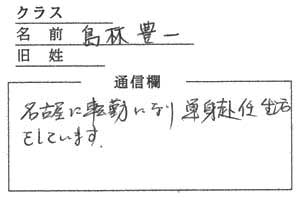 クラス
名前 島林豊一
旧姓
通信欄
名古屋に転勤になり単身赴任生活
をしています。